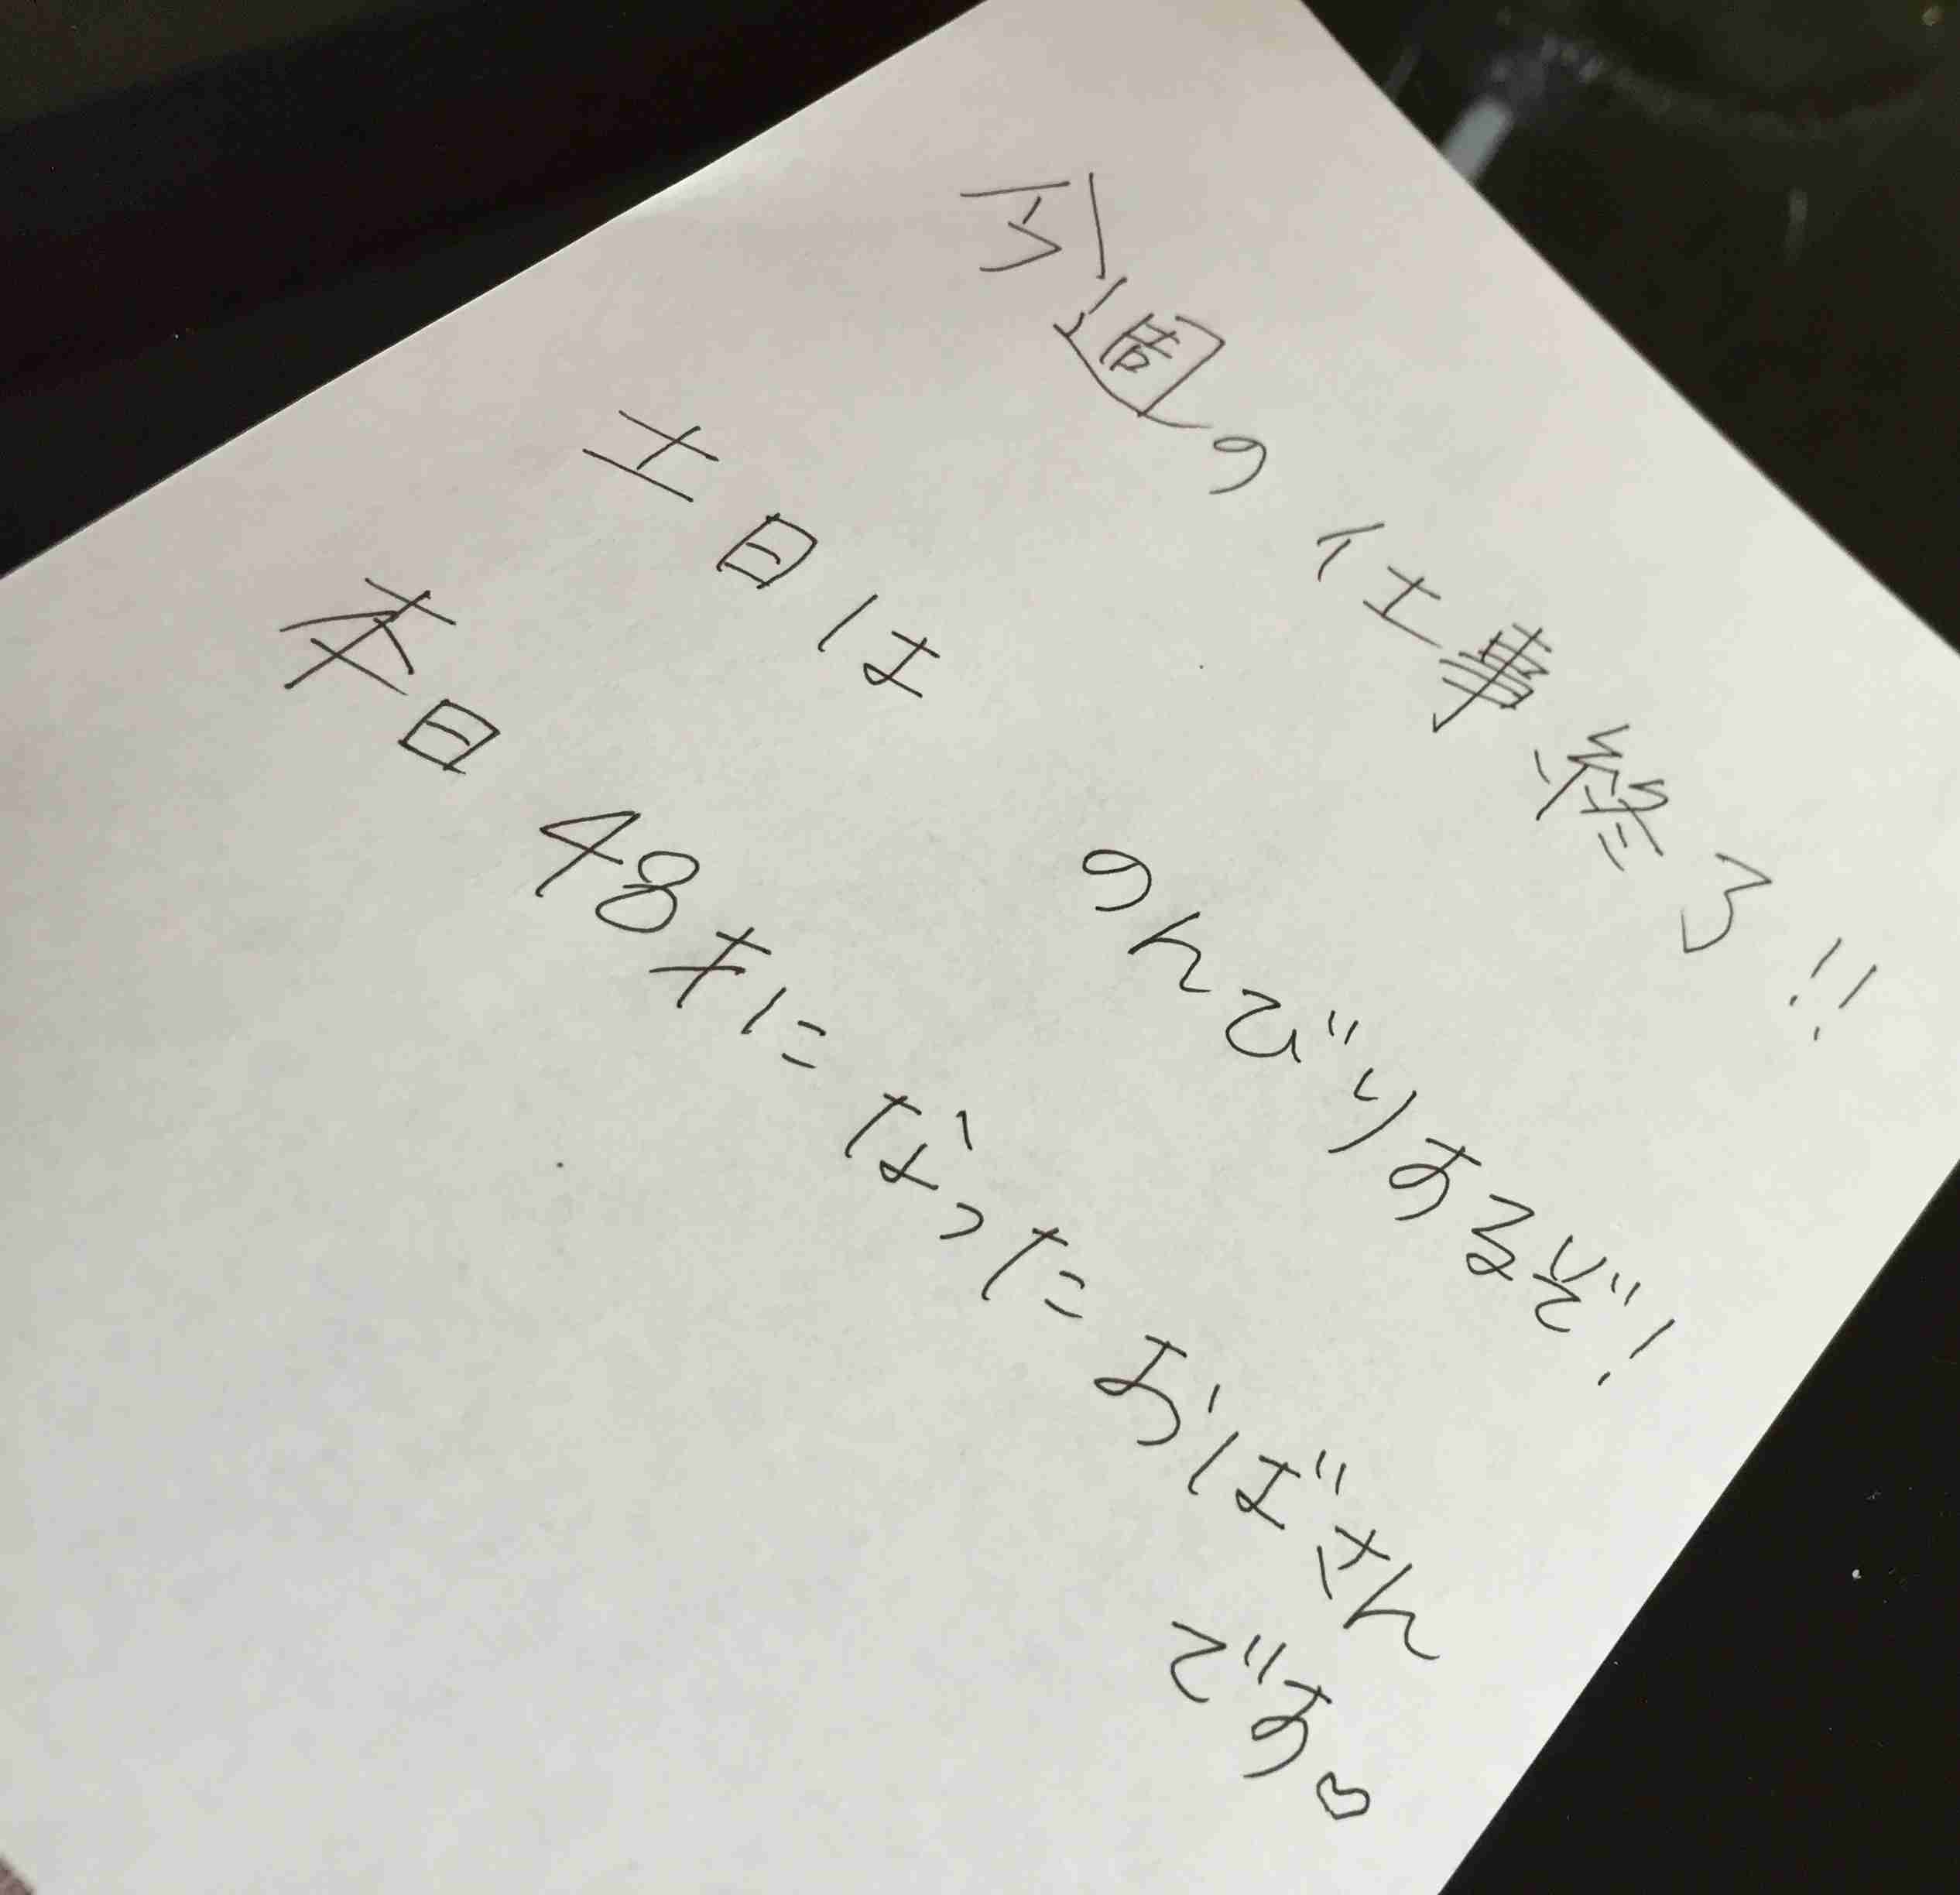 今週の仕事終了!!
土日は のんびりするぞ!
本日48才になったおばさん
です♡